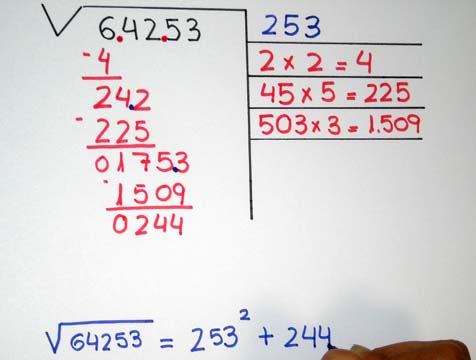 √6.42.53 253
-4 2 × 2 = 4
24.2 45 × 5 = 225
-225 503 × 3 = 1.509
0175.3
-1509
0244
√64253 = 253² + 244